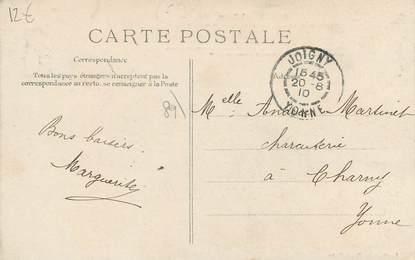 12€
CARTE POSTALE
Correspondance
Tous les pays étrangers n'acceptent pas la
correspondance au recto, se renseigner à la Poste
JOIGNY
15 45
20 -8
10
YONNE
89
Bons baisers
Marguerite
Melle Martinet
charcuterie
à Charny
Yonne